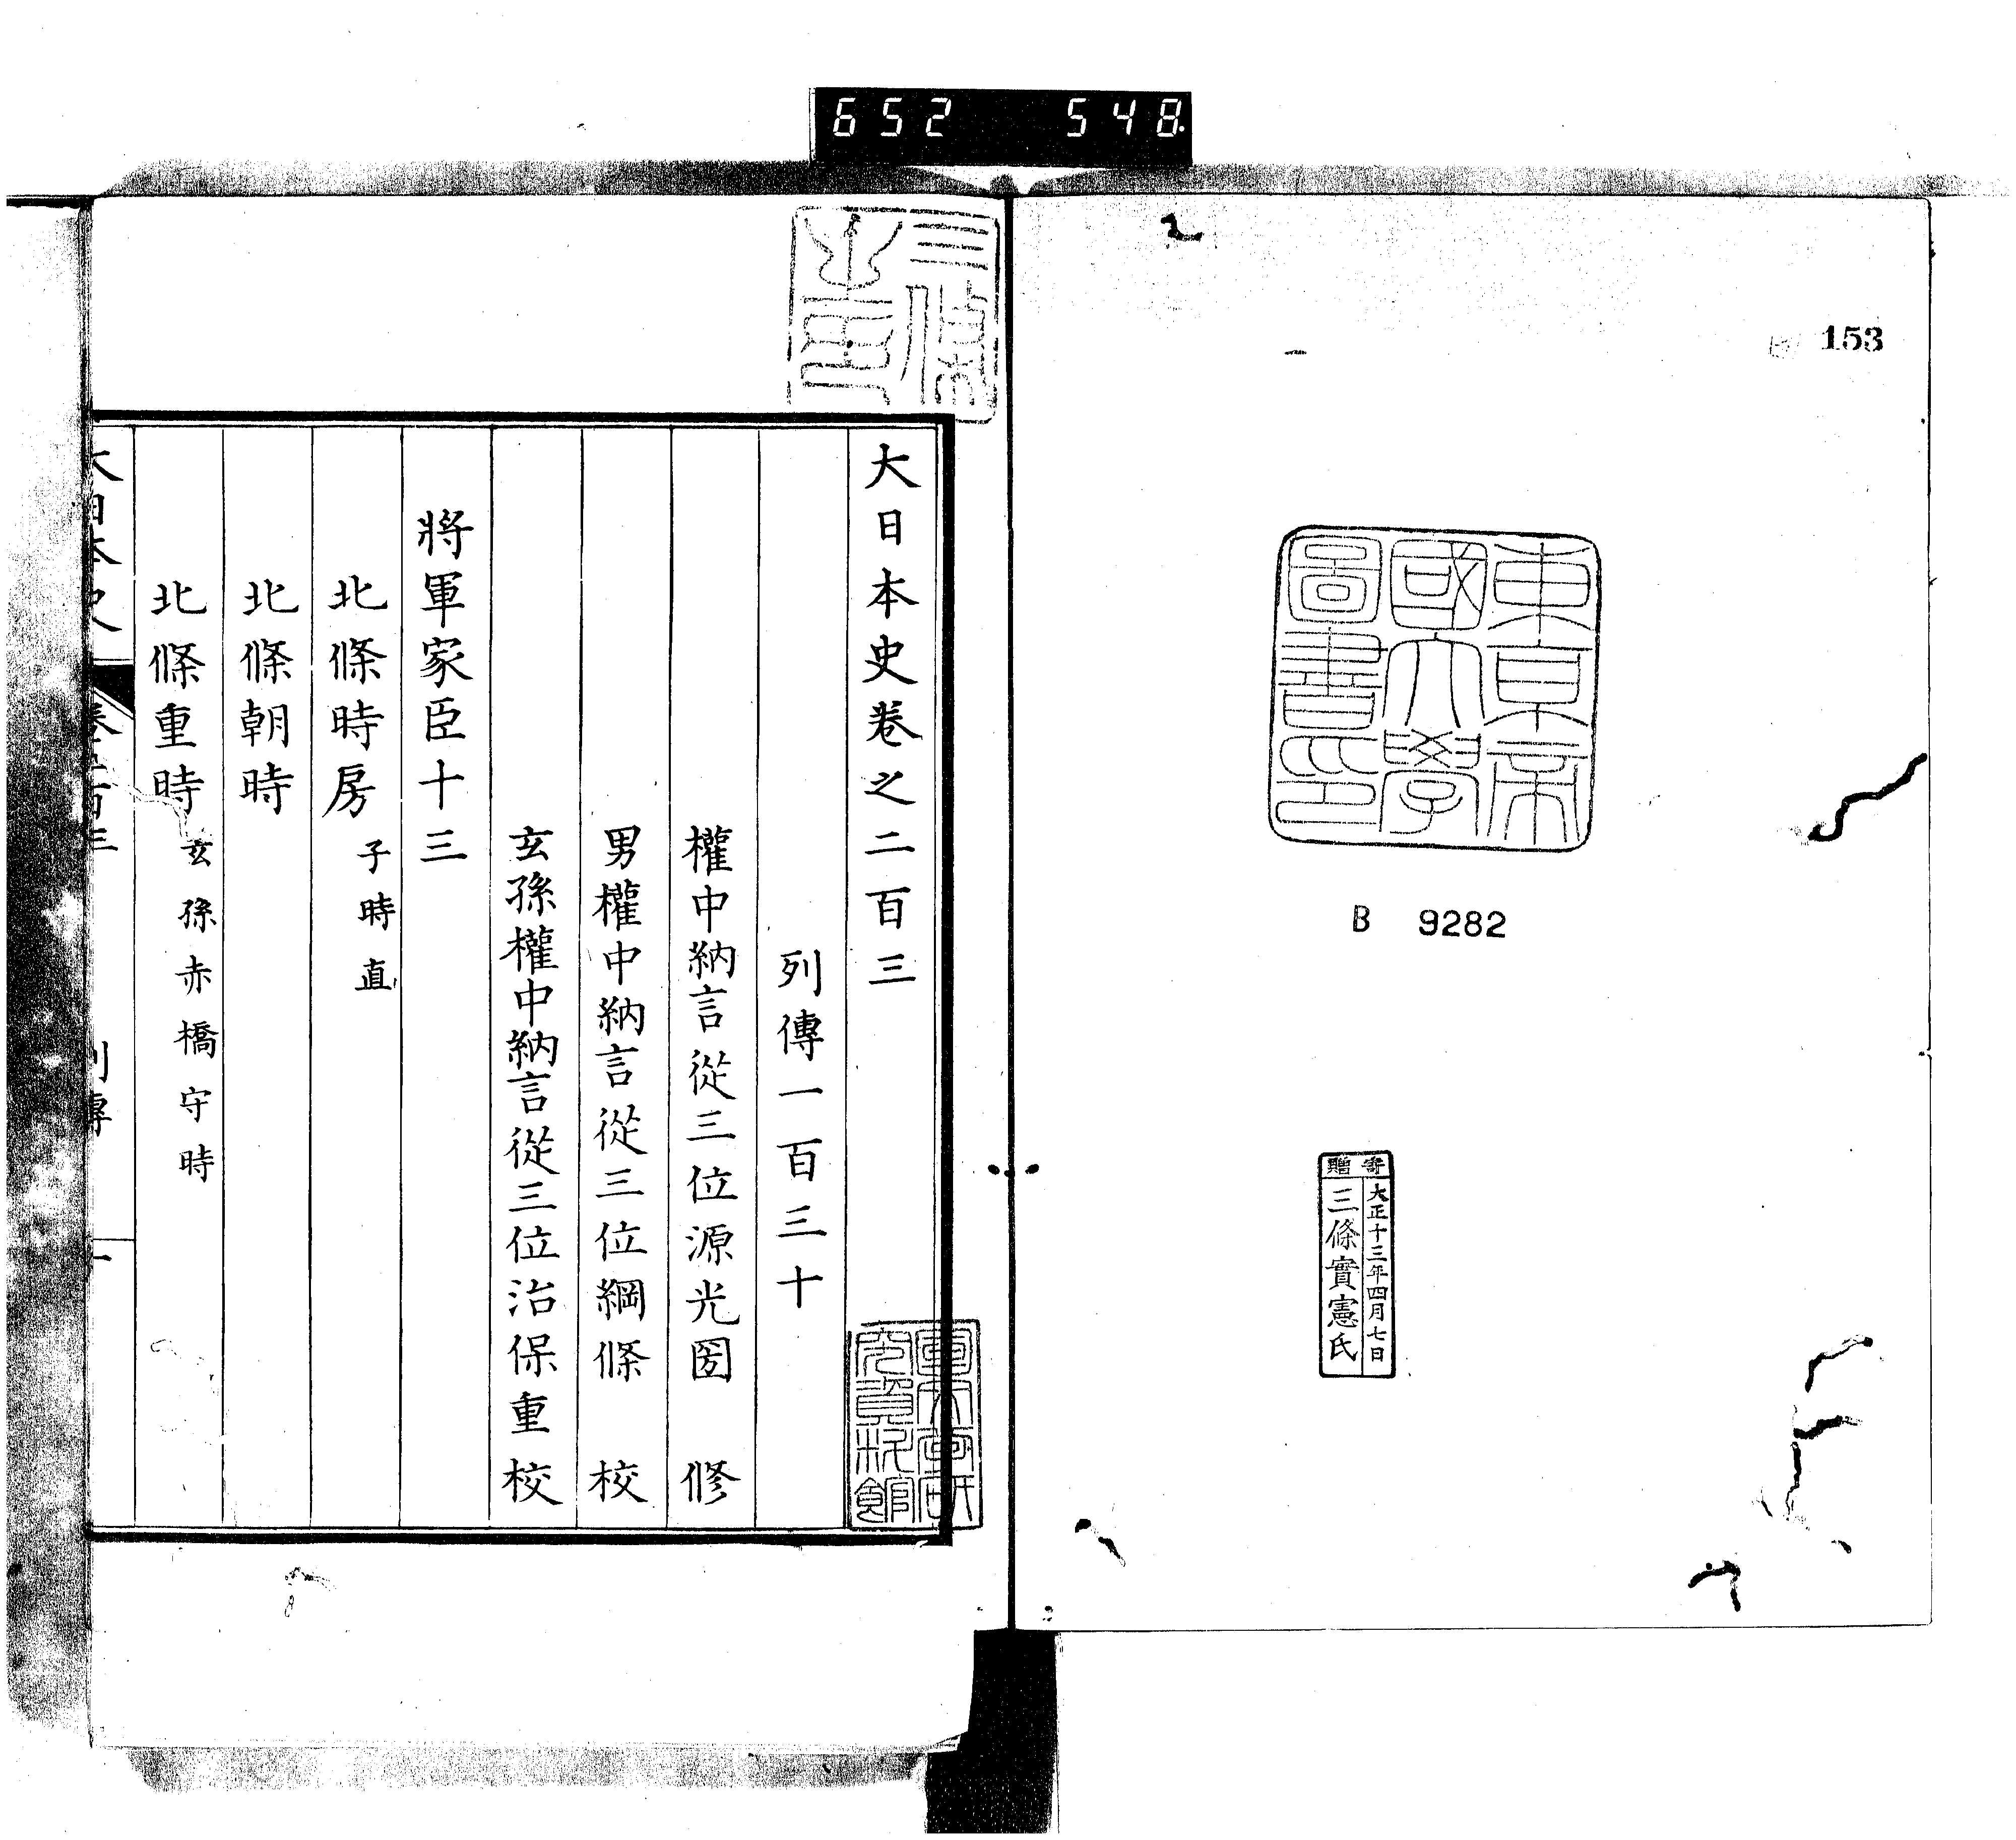 652 548.
153
東京帝
國大學
圖書印
B 9282
寄贈
大正十三年四月七日
三條實憲氏
三條
大日本史卷之二百三
列傳一百三十
權中納言從三位源光圀 修
男權中納言從三位綱條 校
玄孫權中納言從三位治保重校
將軍家臣十三
北條時房 子時直
北條朝時
北條重時 玄孫赤橋守時